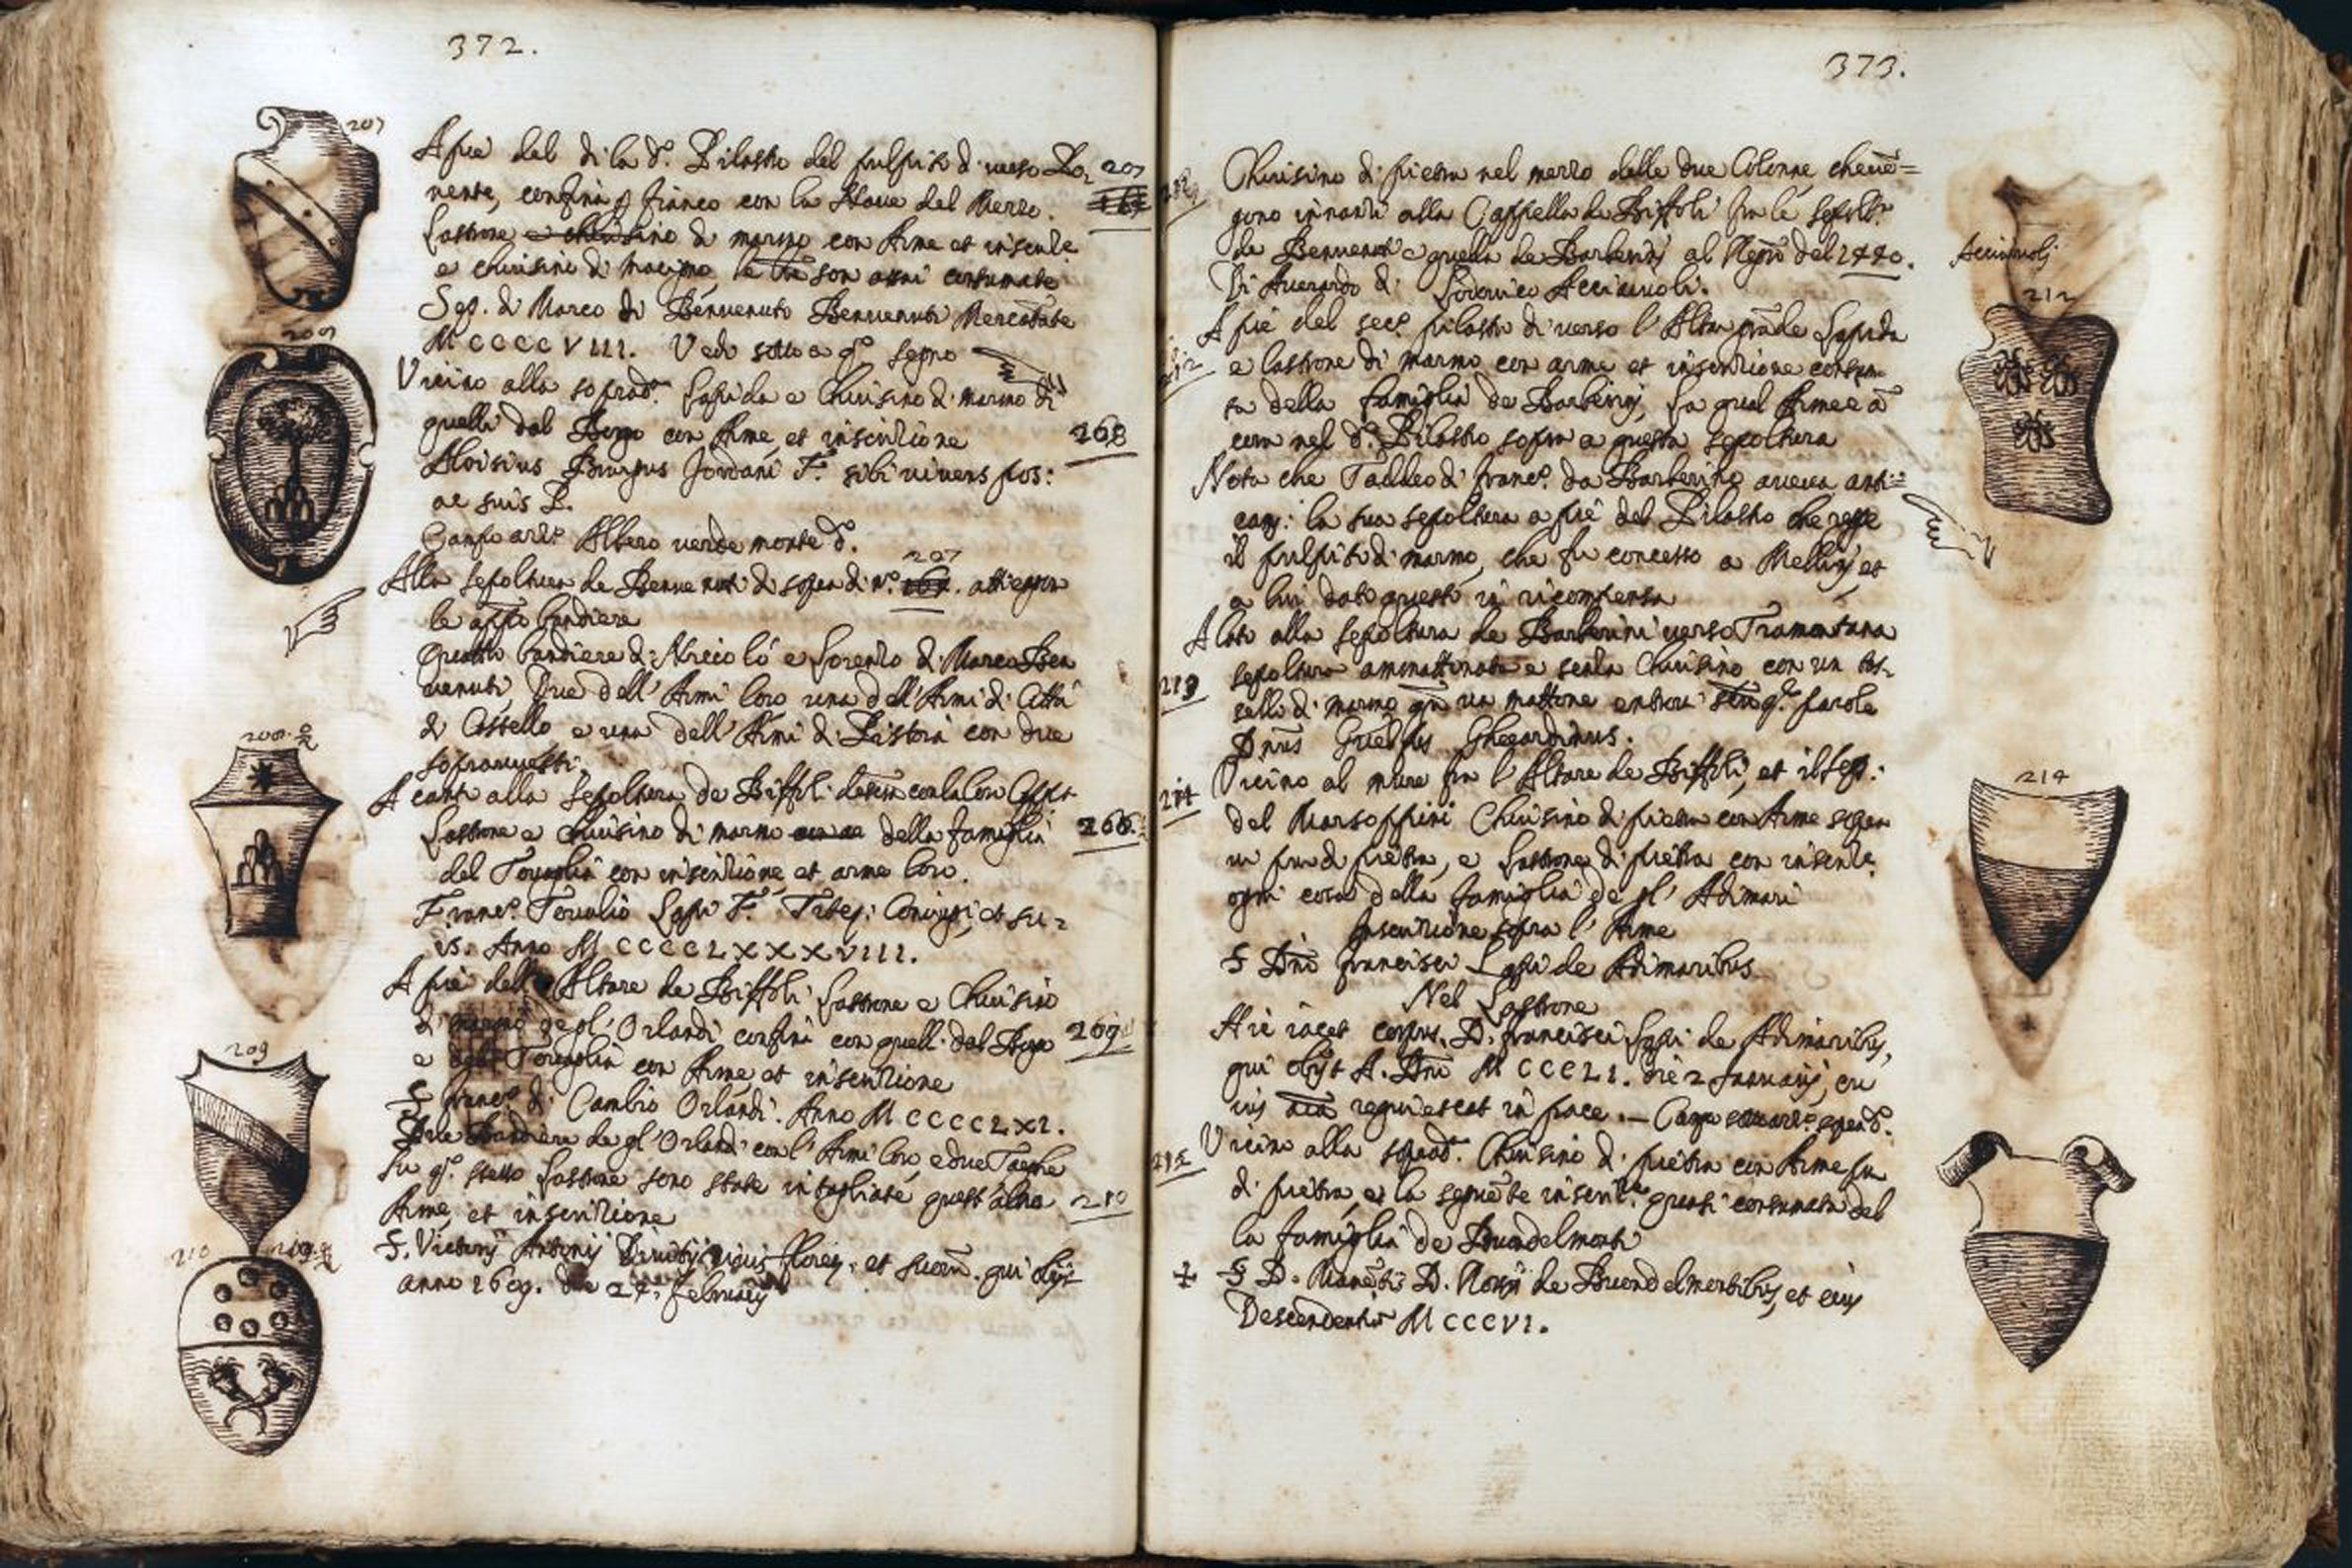 372.
207
A pie del di la d.º Pilastro del pulpito d. verso Po,
207
nente, confina p fianco con la Nave del Mezzo.
Lastrone e chiusino di marmo con Arme et inscritt.e
e chiusini di macigno, le son consumate
Sep. di Marco di Benvenuto Benvenuti Mercatante
MCCCCVIII. Vedi sotto a q.º segno
Vicino alla soprad.ª Lapida e Chiusino di marmo di
quelli dal Borgo con Arme, et inscrittione
268
Aloisius Burgus Jordani F. sibi vivens pos:
ac suis P.
Campo Albero verde monte d.º
207
Alla sepoltura de Benvenuti di sopra di n.º atti
le bandiere
Quattro bandiere di Niccolò e Lorenzo di Marco Ben
venuti, Due dell'Armi loro una dell'Armi di Città
di Castello e una dell'Armi di Pistoia con due
sopravvesti.
A canto alla sepoltura de Biffoli
Lastrone e Chiusino di marmo della famiglia
266.
del Tovaglia con inscrittione, et arme loro.
Franc.º Tovalio Lapi F. Coniugi, et su=
is. Anno MCCCCLXXXVIII.
A pie dell'Altare de Biffoli Lastrone e Chiusino
di marmo de gl'Orlandi confini con quelli dal Borgo
269
e Tovaglia con Arme, et inscrittione
S. Franc.º di Cambio Orlandi. Anno MCCCCLXI.
Due Bandiere de gl'Orlandi con l'Armi loro, e due Targhe
Su q.º stesso Lastrone sono state intagliate quest'altra
210
Arme, et inscrittione
S. Victorij Antonij civis floren. et suorũ. qui obijt
anno 1609. die februarij
209
210
373.
Chiusino di pietra nel mezzo delle due Colonne che vẽ=
gono innanzi alla Cappella de Biffoli fra le sepolt.
de Benvenuti e quella de Barberini al del 1440.
Di Averardo di Lodovico Acciaiuoli.
Acciaiuoli
212
A pie del sec.º pilastro di verso l'Altar grãde Lapida
212
e lastrone di marmo con arme et inscrittione consum
ta della famiglia de Barberini, la qual Arme è ã
cora nel d.º Pilastro sopra a questa sepoltura
Nota che Taddeo di Franc.º da Barberino aveva anti=
cam: la sua sepoltura a pie del Pilastro che regge
il pulpito di marmo, che fu concesso a Mellini, et
a lui dato questo in ricompensa
A lato alla sepoltura de Barberini verso Tramontana
sepoltura ammattonata e senza Chiusino con un tas=
213
sello di marmo un mattone entrovi parole
Dnus Guelfus Gherardinus.
Vicino al muro fra l'Altare de Biffoli, et il sep.
214
del Marsoppini Chiusino di pietra con Arme sopra
di pietra, e Lastrone di pietra con inscritt.e
ogni cosa della famiglia de gl'Adimari
214
Inscrittione sopra l'Arme
S Dni Francisci Lapi de Adimaribus
Nel Lastrone
Hic iacet corpus D. Francisci Lapi de Adimaribus,
qui obijt A. Dni MCCCLI. die 2 Januarij, cu
ius aĩa requiescat in pace. — Campo
Vicino alla soprad.ª Chiusino di pietra con Arme
215
di pietra, et la seguẽte inscritt.e quasi consumata del
la famiglia de Buondelmonti
S D. D. de Buondelmontibus, et eius
Descendentiũ MCCCVI.